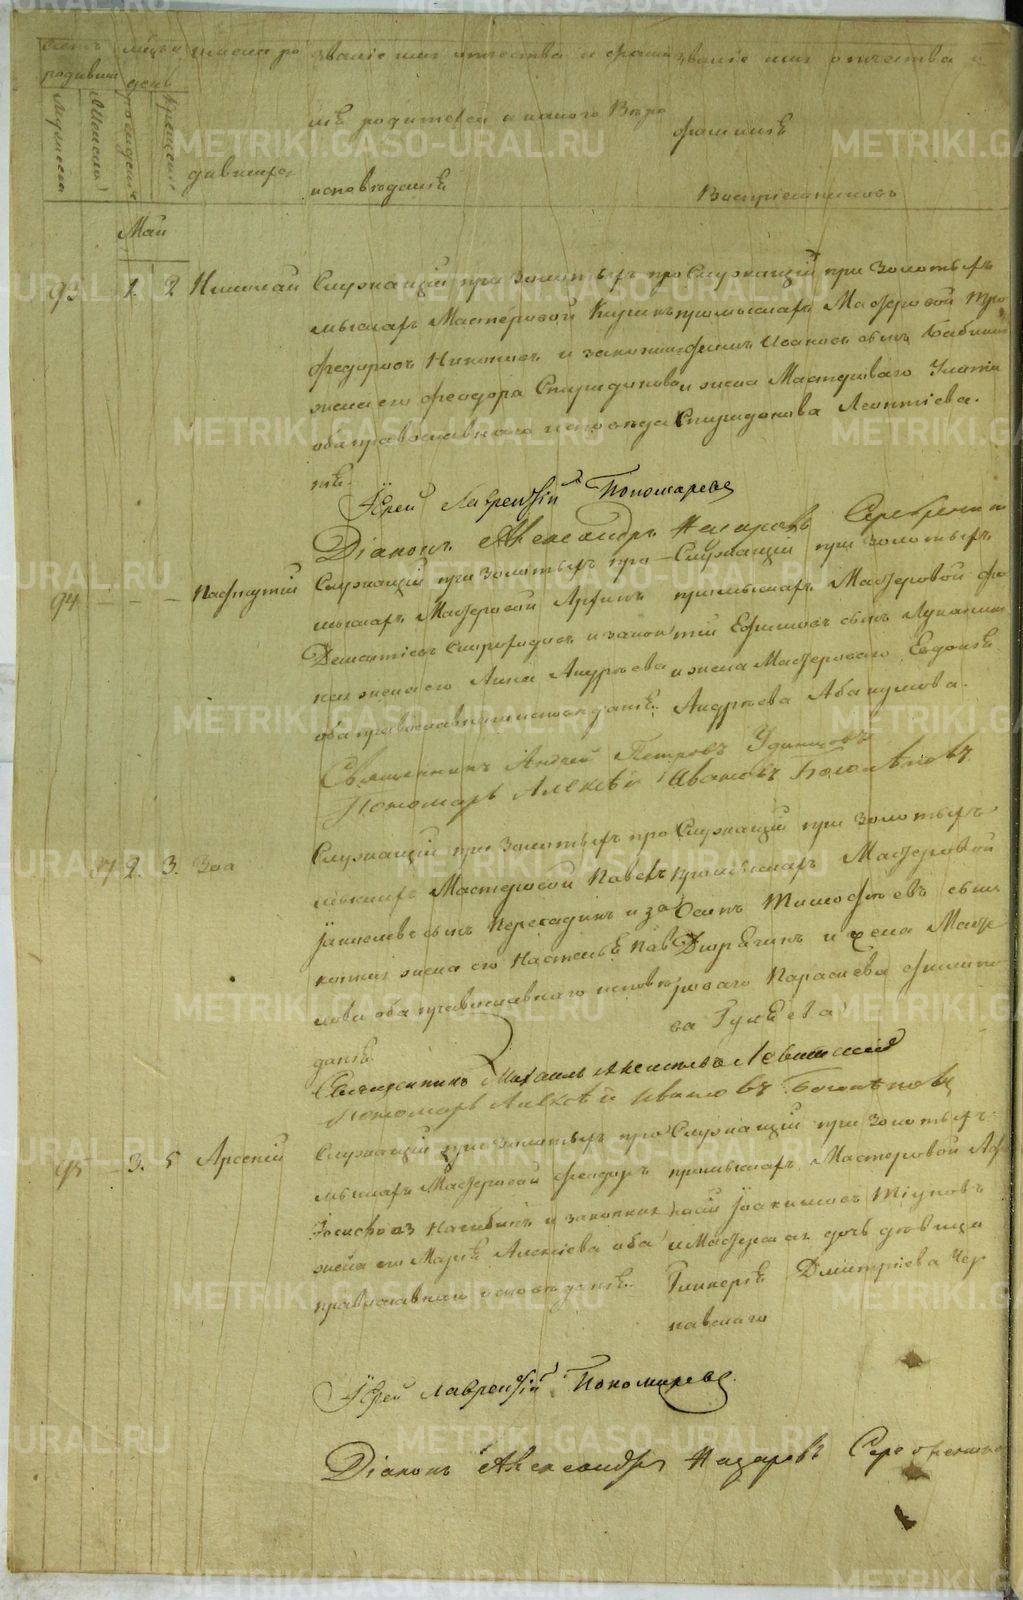 Счетъ
родивших
Мѣсяцъ и
день
Имена ро
дившихся
Званіе имя отчество и фами
лія родителей и какого Вѣро
исповѣданія
Званіе имя отчество и
фамилія
Воспріемниковъ
Мужеска
Женска
рожденія
крещенія
Май
93 1. 2 Николай
Служащій при золотыхъ про
мыслахъ Мастеровой
Федоровъ Никоновъ и законная
жена его Феодора Спиридонова
оба православнаго исповѣда
нія.
Служащій при Золотыхъ
промыслахъ Мастеровой Тро
фимъ Ивановъ сынъ Бабкинъ
и жена Мастероваго
Спиридонова Леонтіева.
Іерей Лаврентій Пономаревъ
Діаконъ Александръ Назаровъ Серебренник
94 — — Пафнутій
Служащій при Золотыхъ про
мыслахъ Мастеровой
Дементіевъ Скороходовъ и закон
ная жена его Анна Андреева
оба православнаго исповѣданія.
Служащій при Золотыхъ
промыслахъ Мастеровой
Ефимовъ сынъ Лукоянинъ
и жена Мастероваго Евдокія
Андреева Абакумова.
Священникъ Андрей Петровъ Удинцовъ
Пономарь Алексѣй Ивановъ Боголѣповъ
2. 3. Зоа
Служащій при Золотыхъ про
мыслахъ Мастеровой Павелъ
сынъ Пересадинъ и за
конная жена его Настасья Пав
лова оба православнаго исповѣ
данія
Служащій при Золотыхъ
промыслахъ Мастеровой
Осипъ Тимофѣевъ сынъ
Дюрягинъ и жена Масте
роваго Параскева Филипо
ва Гулѣева
Священникъ Михаилъ Алексѣевъ Левитскій
Пономарь Алексѣй Ивановъ Боголѣповъ
95 3. 5 Арсеній
Служащій при Золотыхъ про
мыслахъ Мастеровой Феодоръ
Іосифовъ Нагибинъ и законная
жена его Марія Алексіева оба
православнаго исповѣданія.
Служащій при Золотыхъ
промыслахъ Мастеровой Аф
насій Іоакимовъ Тіуновъ
и Мастерская дочь дѣвица
Гликерія Дмитріева Чер
навскаго
Іерей Лаврентій Пономаревъ
Діаконъ Александръ Назаровъ Серебренников
METRIKI.GASO-URAL.RU